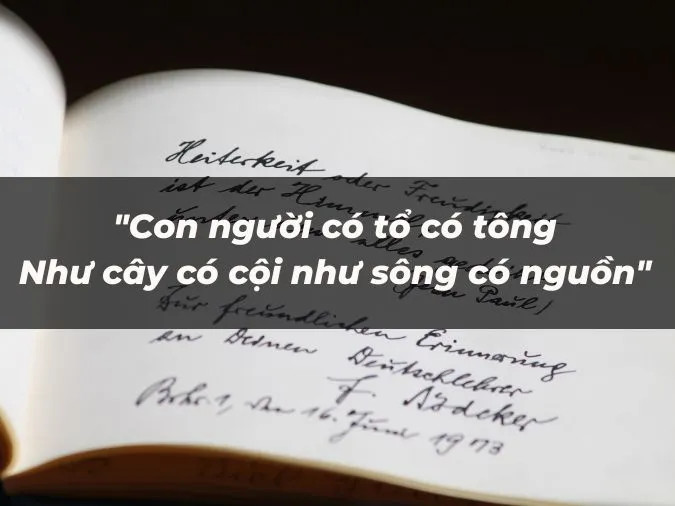 Heiterkeit oder Freudigkeit
ist der Himmel
"Con người có tổ có tông
unter dem alles
Như cây có cội như sông có nguồn"
(Jean Paul)
Zur freundlichen Erinnerung
an Deinen Deutschlehrer
F.
den 16. Juni 1973